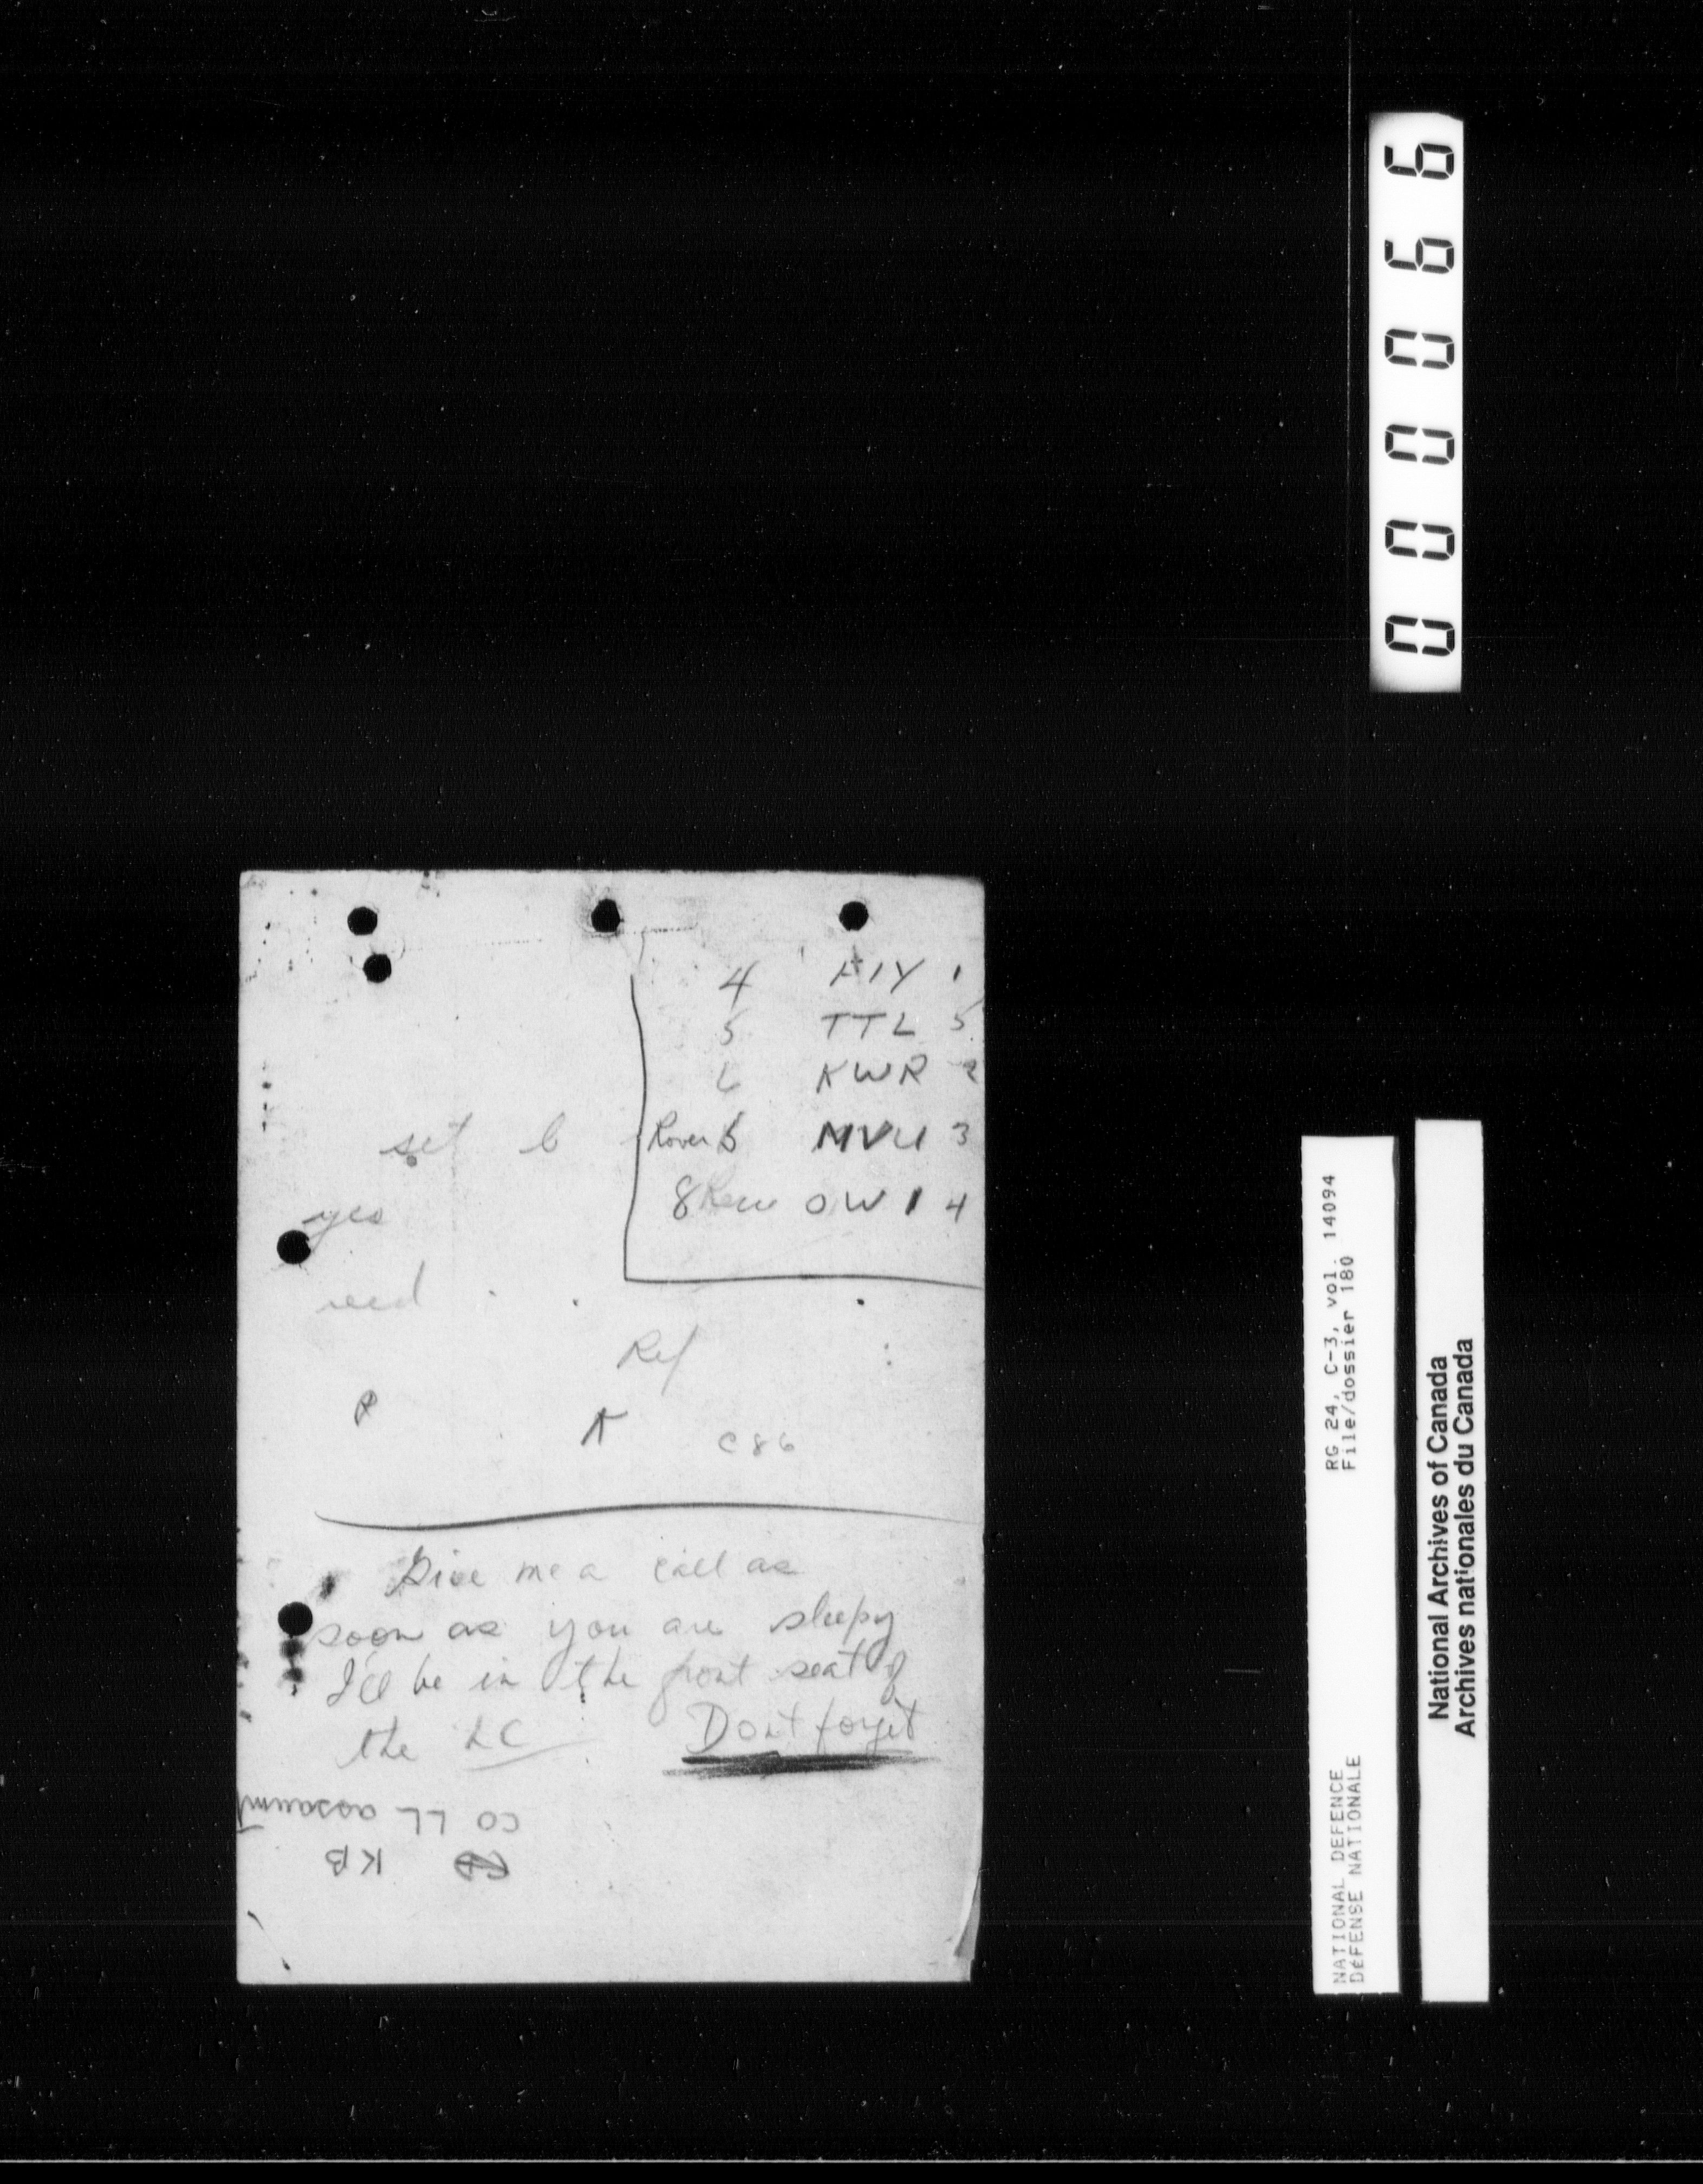 4 AIY 1
5 TTL 5
6 KWR 2
Rover 6 MVU 3
8 OWI 4
set 6
yes
Ref
R
K C86
Give me a call as
soon as you are sleepy
I'll be in the front seat of
the LC Dont forget
CO LL assaunt
KB
000066
RG 24, C-3, vol. 14094
File/dossier 180
NATIONAL DEFENCE
DÉFENSE NATIONALE
National Archives of Canada
Archives nationales du Canada